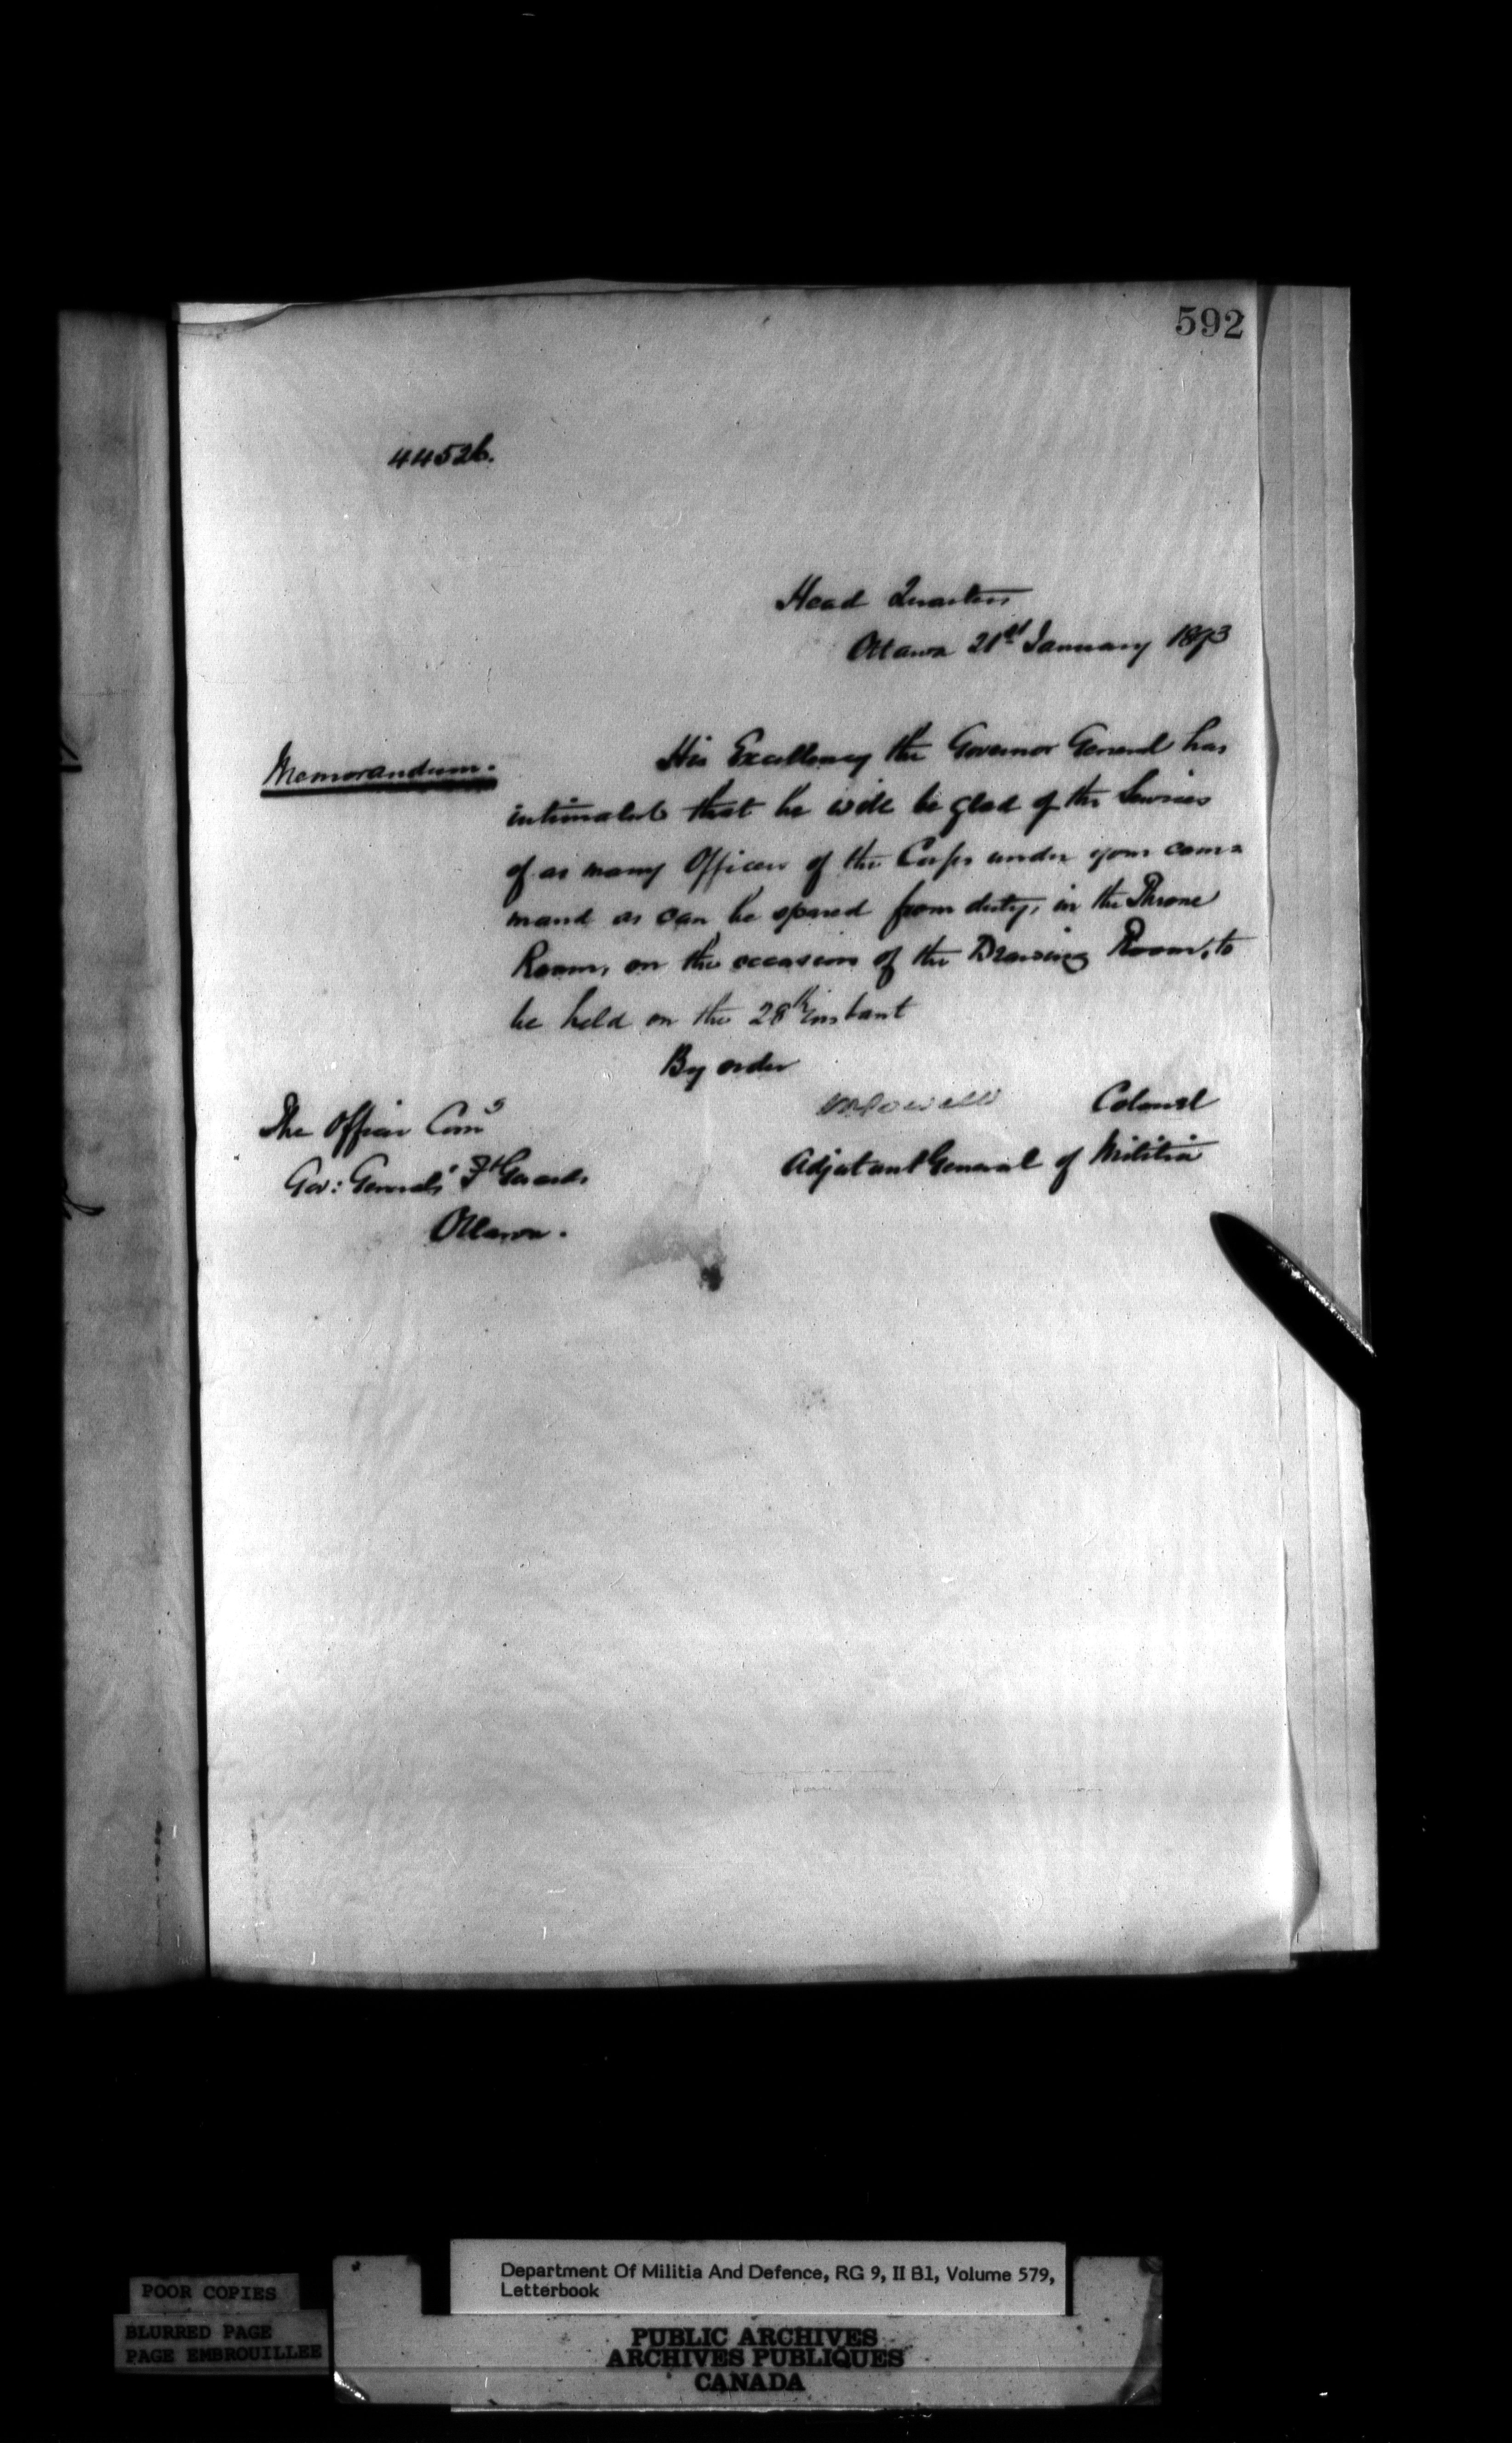 592
44526.
Head Quarters
Ottawa 21st January 1873
Memorandum.
His Excellency the Governor General has
intimated that he will be glad of the Services
of as many Officers of the Corps under your com=
mand as can be spared from duty, in the Throne
Room, on the occasion of the Drawing Room, to
be held on the 28th instant
By order
Powell Colonel
Adjutant General of Militia
The Officer Comg
Gov: General's Ft Guards
Ottawa.
Department Of Militia And Defence, RG 9, II B1, Volume 579,
Letterbook
POOR COPIES
BLURRED PAGE
PAGE EMBROUILLEE
PUBLIC ARCHIVES
ARCHIVES PUBLIQUES
CANADA